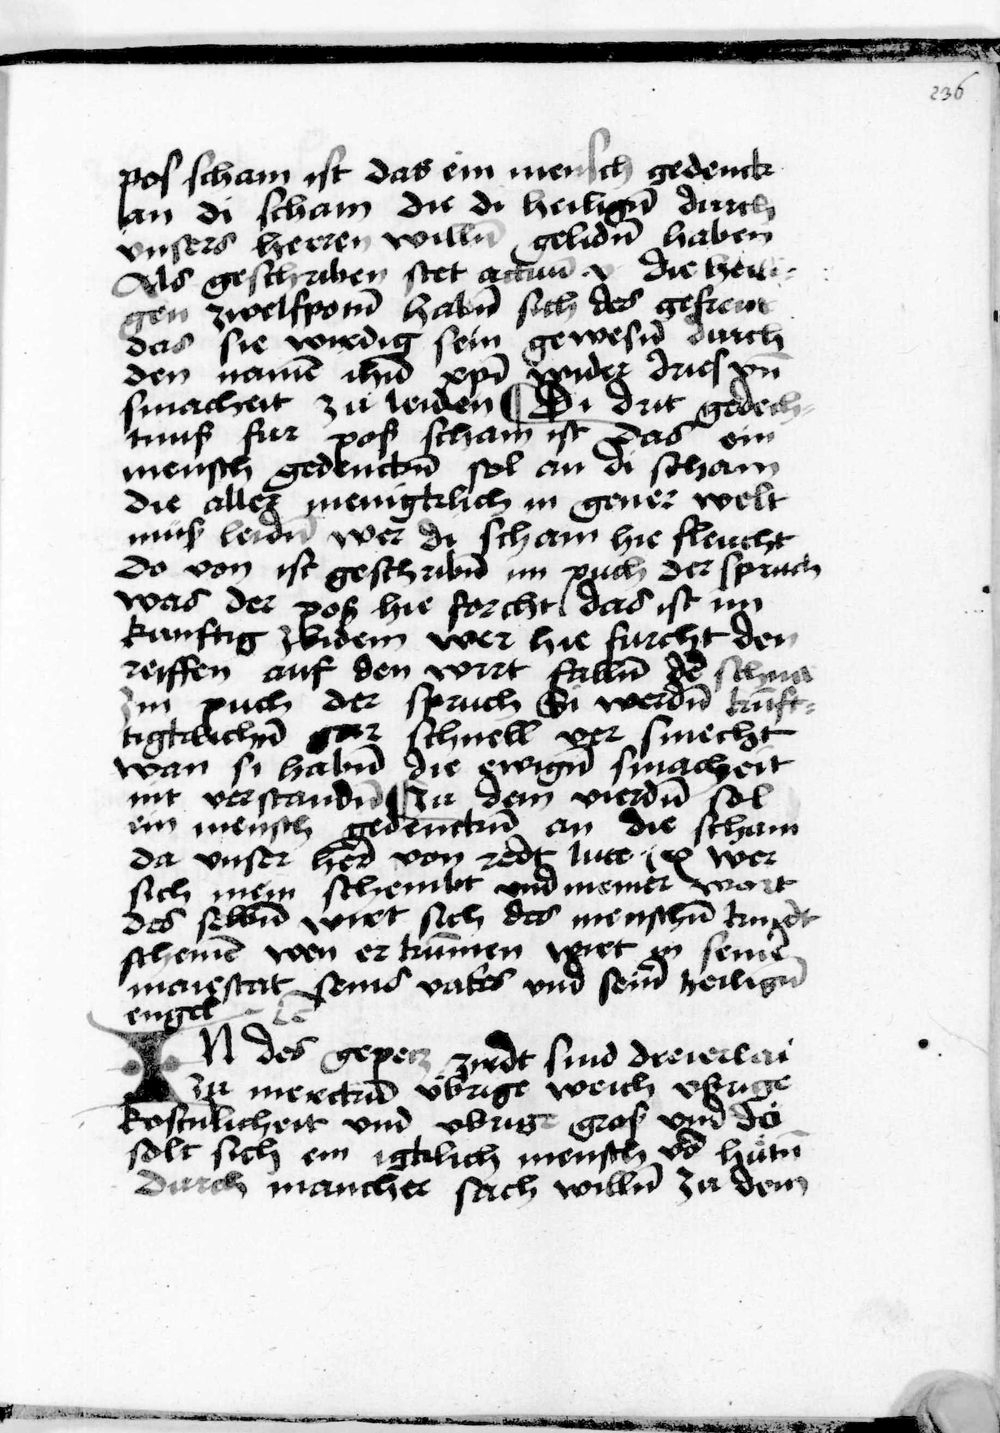 236
pos scham ist das ein mensch gedenck
an di scham die di heiligñ durch
vnsers herren willñ gelidñ haben
Als geschriben stet actuũ v die heili=
gen zwelfpotñ habñ sich des gefreut
das sie wirdig sein gewesñ durch
den namẽ ihũ xp̃i wider dries vñ
smacheit zu leiden ¶ Di drit gedech=
tnuß fur poß scham ist das ein
mensch gedenckñ sol an di scham
die aller menigklich in gener welt
muß leidñ wer di scham hie fleucht
do von ist geschribñ im puch der spruch
was der poß hie forcht das ist im
kunftig zbidem wer hie furcht den
reiffen auf den wirt fallñ dẽ schne
Im puch der spruch Si werdñ kũft=
tigklichñ gar schnell ver smecht
wan si habñ die ewigñ smacheit
nit verstandñ ¶ Zu dem vierdñ sol
ein mensch gedenckñ an die scham
da vnser herꝛ von redt luce ix wer
sich mein schembt vnd meiner wort
des selbñ wirt sich des menschñ kindt
schemẽ wen er kũmen wirt in seinẽ
maiestat seins vaters vnd seinñ heiligñ
engel
IN des gepetz zirdt sind dreierlai
zu merckñ vbrige weich vbrige
kostnlicheit vnd vbrige groß vnd do
solt sich ein igklich mensch vor hutñ
durch mancher sach willñ zu dem